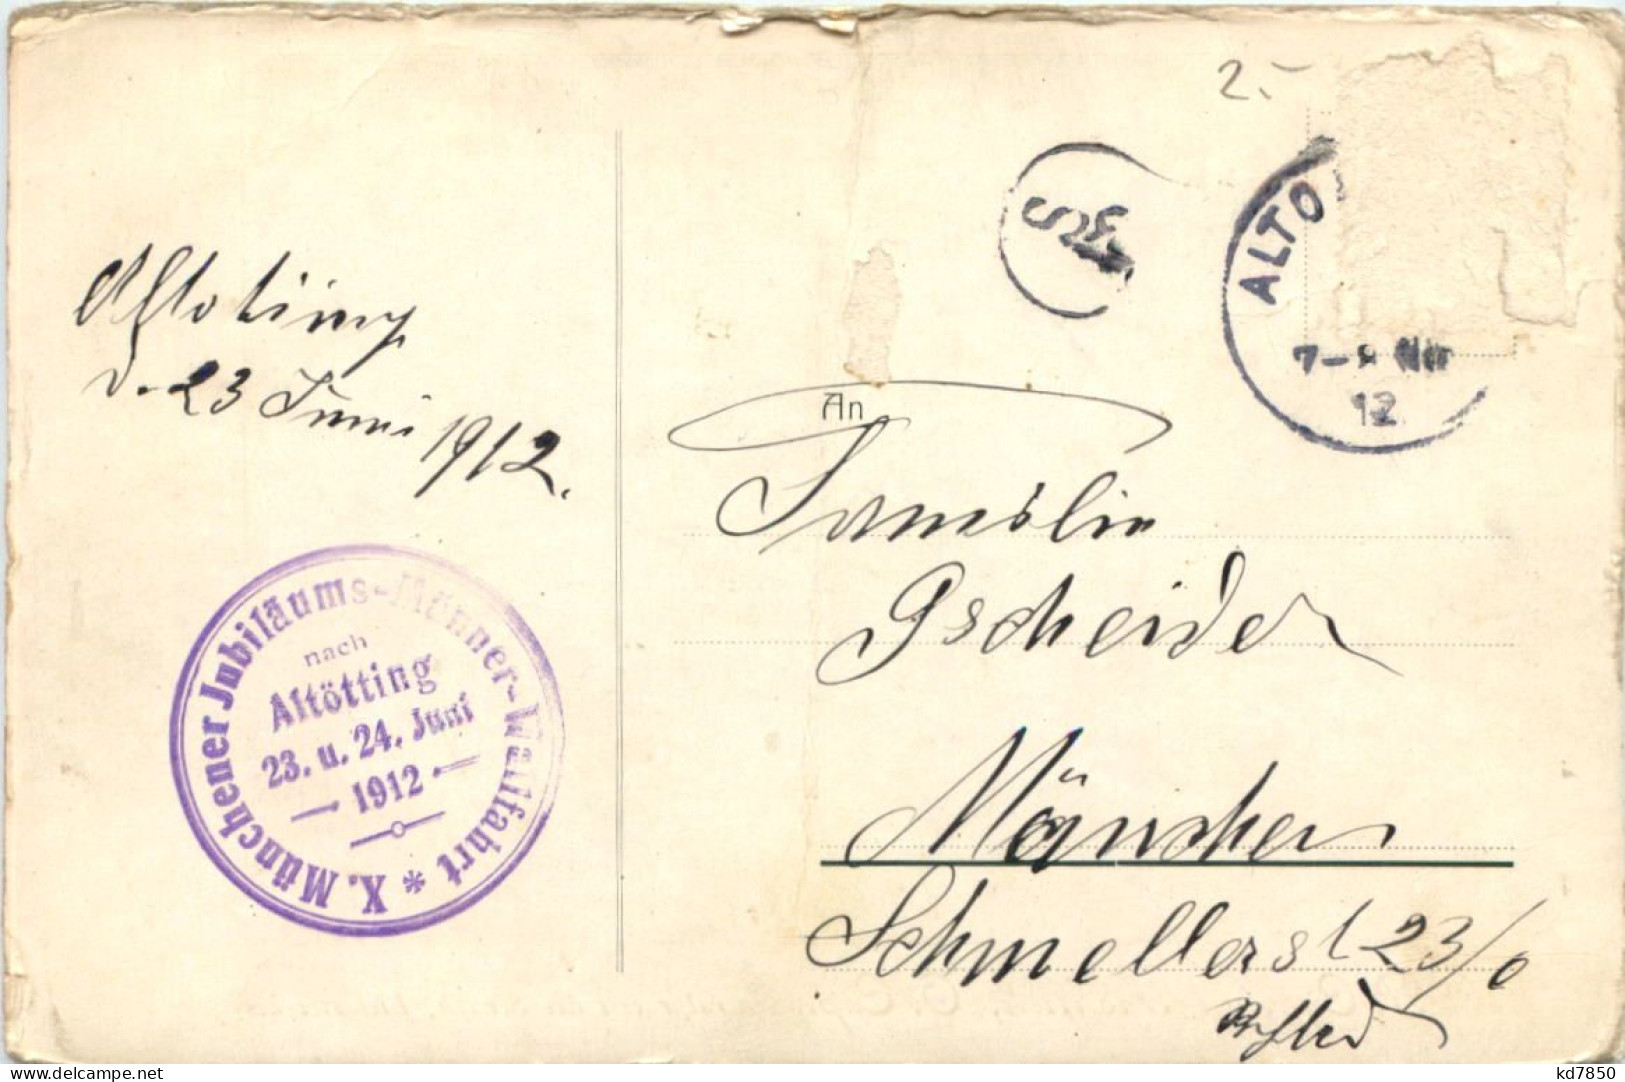 2.-
ALTÖ
7-8 Nm
12
Altötting
d. 23 Juni 1912.
An
Familie
Gscheider
München
Schmellerst 23/0
X. Münchener Jubiläums-Männer-Wallfahrt *
nach
Altötting
23. u. 24. Juni
1912
www.delcampe.net
kd7850